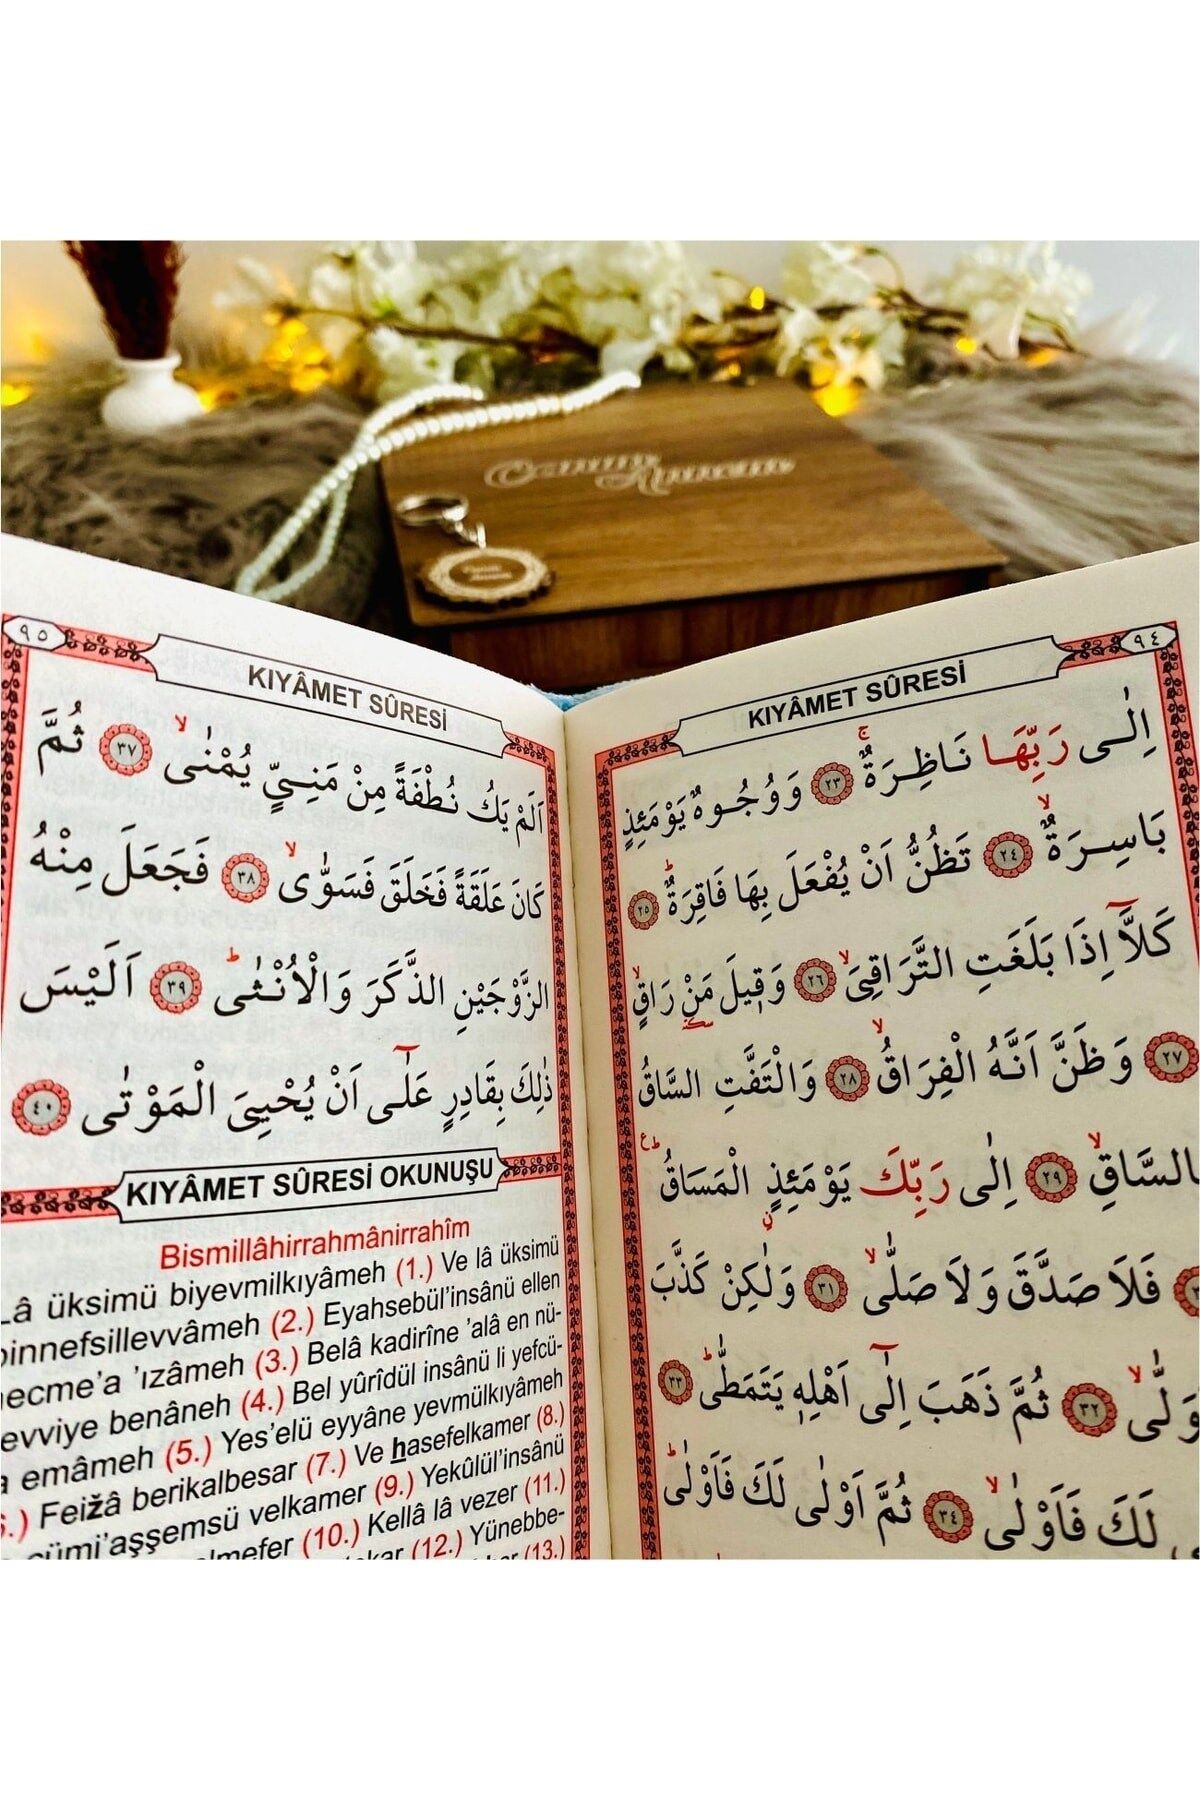 Canım Annem
٩٤
KIYÂMET SÛRESİ
اِلٰى رَبِّهَا نَاظِرَةٌۚ ﴿٢٣﴾ وَوُجُوهٌ يَوْمَئِذٍ
بَاسِرَةٌۙ ﴿٢٤﴾ تَظُنُّ اَنْ يُفْعَلَ بِهَا فَاقِرَةٌۜ ﴿٢٥﴾
كَلَّٓا اِذَا بَلَغَتِ التَّرَاقِيَۙ ﴿٢٦﴾ وَق۪يلَ مَنْ رَاقٍۙ
﴿٢٧﴾ وَظَنَّ اَنَّهُ الْفِرَاقُۙ ﴿٢٨﴾ وَالْتَفَّتِ السَّاقُ
بِالسَّاقِۙ ﴿٢٩﴾ اِلٰى رَبِّكَ يَوْمَئِذٍ الْمَسَاقُۜ
فَلَا صَدَّقَ وَلَا صَلّٰىۙ ﴿٣١﴾ وَلٰكِنْ كَذَّبَ
﴿٣٢﴾ ثُمَّ ذَهَبَ اِلٰٓى اَهْلِه۪ يَتَمَطّٰىۜ ﴿٣٣﴾
لَكَ فَاَوْلٰىۙ ﴿٣٤﴾ ثُمَّ اَوْلٰى لَكَ فَاَوْلٰىۜ
٩٥
KIYÂMET SÛRESİ
اَلَمْ يَكُ نُطْفَةً مِنْ مَنِيٍّ يُمْنٰىۙ ﴿٣٧﴾ ثُمَّ
كَانَ عَلَقَةً فَخَلَقَ فَسَوّٰىۙ ﴿٣٨﴾ فَجَعَلَ مِنْهُ
الزَّوْجَيْنِ الذَّكَرَ وَالْاُنْثٰىۜ ﴿٣٩﴾ اَلَيْسَ
ذٰلِكَ بِقَادِرٍ عَلٰٓى اَنْ يُحْيِيَ الْمَوْتٰى ﴿٤٠﴾
KIYÂMET SÛRESİ OKUNUŞU
Bismillâhirrahmânirrahîm
Lâ üksimü biyevmilkıyâmeh (1.) Ve lâ üksimü
binnefsillevvâmeh (2.) Eyahsebül'insânü ellen
necme'a 'ızâmeh (3.) Belâ kadirîne 'alâ en nü-
evviye benâneh (4.) Bel yûrîdül insânü li yefcü-
a emâmeh (5.) Yes'elü eyyâne yevmülkıyâmeh
Feižâ berikalbesar (7.) Ve hasefelkamer (8.)
cümi'aşşemsü velkamer (9.) Yekûlül'insânü
elmefer (10.) Kellâ lâ vezer (11.)
(12.) Yünebbe-
(13.)